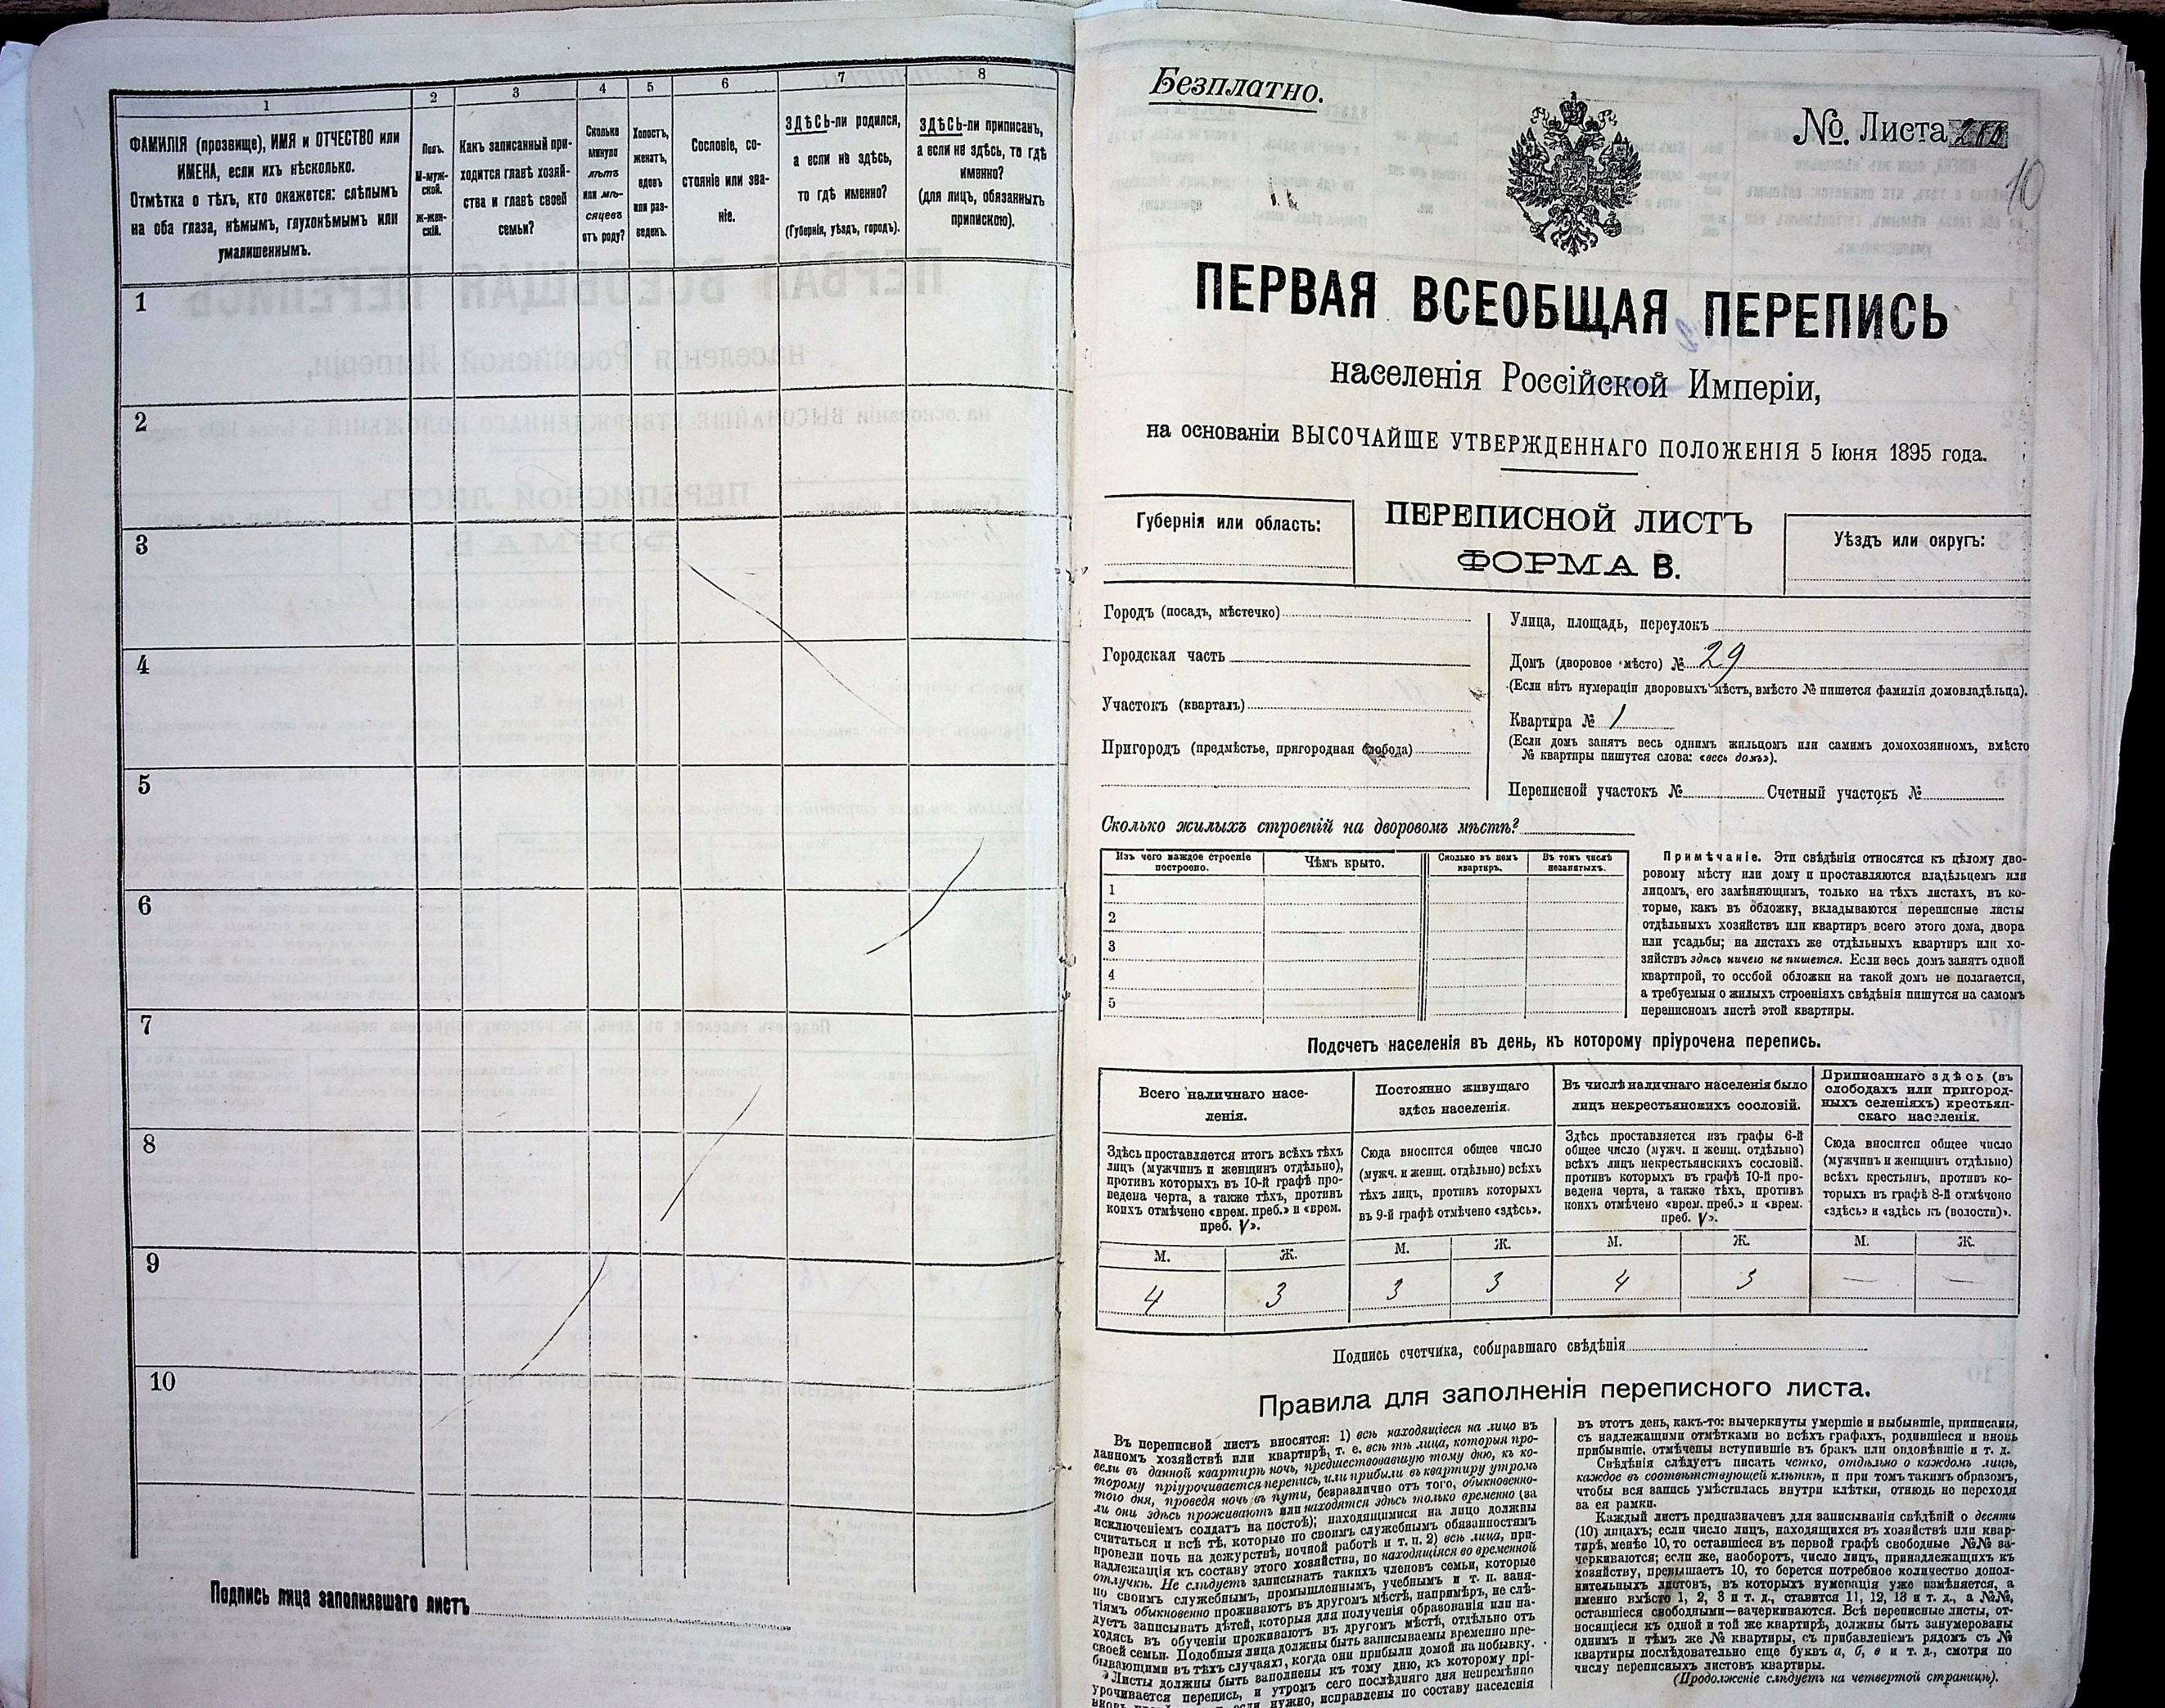 1
2
3
4
5
6
7
8
ФАМИЛІЯ (прозвище), ИМЯ и ОТЧЕСТВО или
ИМЕНА, если ихъ нѣсколько.
Отмѣтка о тѣхъ, кто окажется: слѣпымъ
на оба глаза, нѣмымъ, глухонѣмымъ или
умалишеннымъ.
Полъ.
М-муж-
ской.
ж-жен-
скій.
Какъ записанный при-
ходится главѣ хозяй-
ства и главѣ своей
семьи?
Сколько
минуло
лѣтъ
или мѣ-
сяцевъ
отъ роду?
Холостъ,
женатъ,
вдовъ
или раз-
веденъ.
Сословіе, со-
стояніе или зва-
ніе.
ЗДѢСЬ-ли родился,
а если не здѣсь,
то гдѣ именно?
(Губернія, уѣздъ, городъ).
ЗДѢСЬ-ли приписанъ,
а если не здѣсь, то гдѣ
именно?
(для лицъ, обязанныхъ
припискою).
1
2
3
4
5
6
7
8
9
10
Подпись лица заполнявшаго листъ
Безплатно.
№ Листа
10
ПЕРВАЯ ВСЕОБЩАЯ ПЕРЕПИСЬ
населенія Россійской Имперіи,
на основаніи ВЫСОЧАЙШЕ УТВЕРЖДЕННАГО ПОЛОЖЕНІЯ 5 Іюня 1895 года.
Губернія или область:
ПЕРЕПИСНОЙ ЛИСТЪ
ФОРМА В.
Уѣздъ или округъ:
Городъ (посадъ, мѣстечко)
Городская часть
Участокъ (кварталъ)
Пригородъ (предмѣстье, пригородная слобода)
Улица, площадь, переулокъ
Домъ (дворовое мѣсто) № 29
(Если нѣтъ нумераціи дворовыхъ мѣстъ, вмѣсто № пишется фамилія домовладѣльца).
Квартира № 1
(Если домъ занятъ весь однимъ жильцомъ или самимъ домохозяиномъ, вмѣсто
№ квартиры пишутся слова: «весь домъ»).
Переписной участокъ № Счетный участокъ №
Сколько жилыхъ строеній на дворовомъ мѣстѣ?
Изъ чего каждое строеніе
построено.
Чѣмъ крыто.
Сколько въ немъ
квартиръ.
Въ томъ числѣ
незанятыхъ.
1
2
3
4
5
Примѣчаніе. Эти свѣдѣнія относятся къ цѣлому дво-
ровому мѣсту или дому и проставляются владѣльцемъ или
лицомъ, его замѣняющимъ, только на тѣхъ листахъ, въ ко-
торые, какъ въ обложку, вкладываются переписные листы
отдѣльныхъ хозяйствъ или квартиръ всего этого дома, двора
или усадьбы; на листахъ же отдѣльныхъ квартиръ или хо-
зяйствъ здѣсь ничего не пишется. Если весь домъ занятъ одной
квартирой, то особой обложки на такой домъ не полагается,
а требуемыя о жилыхъ строеніяхъ свѣдѣнія пишутся на самомъ
переписномъ листѣ этой квартиры.
Подсчетъ населенія въ день, къ которому пріурочена перепись.
Всего наличнаго насе-
ленія.
Постоянно живущаго
здѣсь населенія.
Въ числѣ наличнаго населенія было
лицъ некрестьянскихъ сословій.
Приписаннаго здѣсь (въ
слободахъ или пригород-
ныхъ селеніяхъ) крестьян-
скаго населенія.
Здѣсь проставляется итогъ всѣхъ тѣхъ
лицъ (мужчинъ и женщинъ отдѣльно),
противъ которыхъ въ 10-й графѣ про-
ведена черта, а также тѣхъ, противъ
коихъ отмѣчено «врем. преб.» и «врем.
преб. V».
Сюда вносится общее число
(мужч. и женщ. отдѣльно) всѣхъ
тѣхъ лицъ, противъ которыхъ
въ 9-й графѣ отмѣчено «здѣсь».
Здѣсь проставляется изъ графы 6-й
общее число (мужч. и женщ. отдѣльно)
всѣхъ лицъ некрестьянскихъ сословій,
противъ которыхъ въ графѣ 10-й про-
ведена черта, а также тѣхъ, противъ
коихъ отмѣчено «врем. преб.» и «врем.
преб. V».
Сюда вносится общее число
(мужчинъ и женщинъ отдѣльно)
всѣхъ крестьянъ, противъ ко-
торыхъ въ графѣ 8-й отмѣчено
«здѣсь» и «здѣсь къ (волости)».
М. Ж. М. Ж. М. Ж. М. Ж.
4 3 3 3 4 3 — —
Подпись счетчика, собиравшаго свѣдѣнія
Правила для заполненія переписного листа.
Въ переписной листъ вносятся: 1) всѣ находящіеся на лицо въ
данномъ хозяйствѣ или квартирѣ, т. е. всѣ тѣ лица, которыя про-
вели въ данной квартирѣ ночь, предшествовавшую тому дню, къ ко-
торому пріурочивается перепись, или прибыли въ квартиру утромъ
того дня, проведя ночь въ пути, безразлично отъ того, обыкновенно-
ли они здѣсь проживаютъ или находятся здѣсь только временно (за
исключеніемъ солдатъ на постоѣ); находящимися на лицо должны
считаться и всѣ тѣ, которые по своимъ служебнымъ обязанностямъ
провели ночь на дежурствѣ, ночной работѣ и т. п. 2) всѣ лица, при-
надлежащія къ составу этого хозяйства, но находящіяся во временной
отлучкѣ. Не слѣдуетъ записывать такихъ членовъ семьи, которые
по своимъ служебнымъ, промышленнымъ, учебнымъ и т. п. заня-
тіямъ обыкновенно проживаютъ въ другомъ мѣстѣ, напримѣръ, не слѣ-
дуетъ записывать дѣтей, которыя для полученія образованія или на-
ходясь въ обученіи проживаютъ въ другомъ мѣстѣ, отдѣльно отъ
своей семьи. Подобныя лица должны быть записываемы временно пре-
бывающими въ тѣхъ случаяхъ, когда они прибыли домой на побывку.
Листы должны быть заполнены къ тому дню, къ которому прі-
урочивается перепись, и утромъ сего послѣдняго дня непремѣнно
нужно, исправлены по составу населенія
въ этотъ день, какъ-то: вычеркнуты умершіе и выбывшіе, приписаны,
съ надлежащими отмѣтками во всѣхъ графахъ, родившіеся и вновь
прибывшіе, отмѣчены вступившіе въ бракъ или овдовѣвшіе и т. д.
Свѣдѣнія слѣдуетъ писать четко, отдѣльно о каждомъ лицѣ,
каждое въ соотвѣтствующей клѣткѣ, и при томъ такимъ образомъ,
чтобы вся запись умѣстилась внутри клѣтки, отнюдь не переходя
за ея рамки.
Каждый листъ предназначенъ для записыванія свѣдѣній о десяти
(10) лицахъ; если число лицъ, находящихся въ хозяйствѣ или квар-
тирѣ, менѣе 10, то оставшіеся въ первой графѣ свободные №№ за-
черкиваются; если же, наоборотъ, число лицъ, принадлежащихъ къ
хозяйству, превышаетъ 10, то берется потребное количество допол-
нительныхъ листовъ, въ которыхъ нумерація уже измѣняется, а
именно вмѣсто 1, 2, 3 и т. д., ставится 11, 12, 13 и т. д., а №№,
оставшіеся свободными—зачеркиваются. Всѣ переписные листы, от-
носящіеся къ одной и той же квартирѣ, должны быть занумерованы
однимъ и тѣмъ же № квартиры, съ прибавленіемъ рядомъ съ №
квартиры послѣдовательно еще буквъ а, б, в и т. д., смотря по
числу переписныхъ листовъ квартиры.
(Продолженіе слѣдуетъ на четвертой страницѣ).